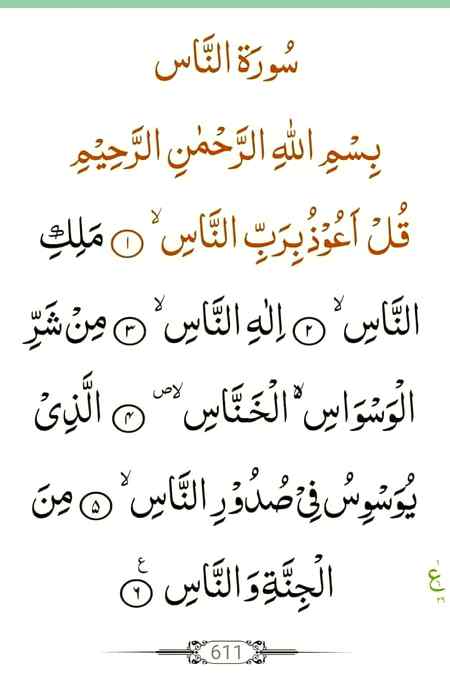 سُورَة النَّاس
بِسْمِ اللهِ الرَّحْمٰنِ الرَّحِيْمِ
قُلْ اَعُوْذُ بِرَبِّ النَّاسِ ۙ ﴿۱﴾ مَلِكِ
النَّاسِ ۙ ﴿۲﴾ اِلٰهِ النَّاسِ ۙ ﴿۳﴾ مِنْ شَرِّ
الْوَسْوَاسِ ۙ الْخَنَّاسِ ۙ ص ﴿۴﴾ الَّذِیْ
يُوَسْوِسُ فِیْ صُدُوْرِ النَّاسِ ۙ ﴿۵﴾ مِنَ
الْجِنَّةِ وَ النَّاسِ ع ﴿۶﴾
611